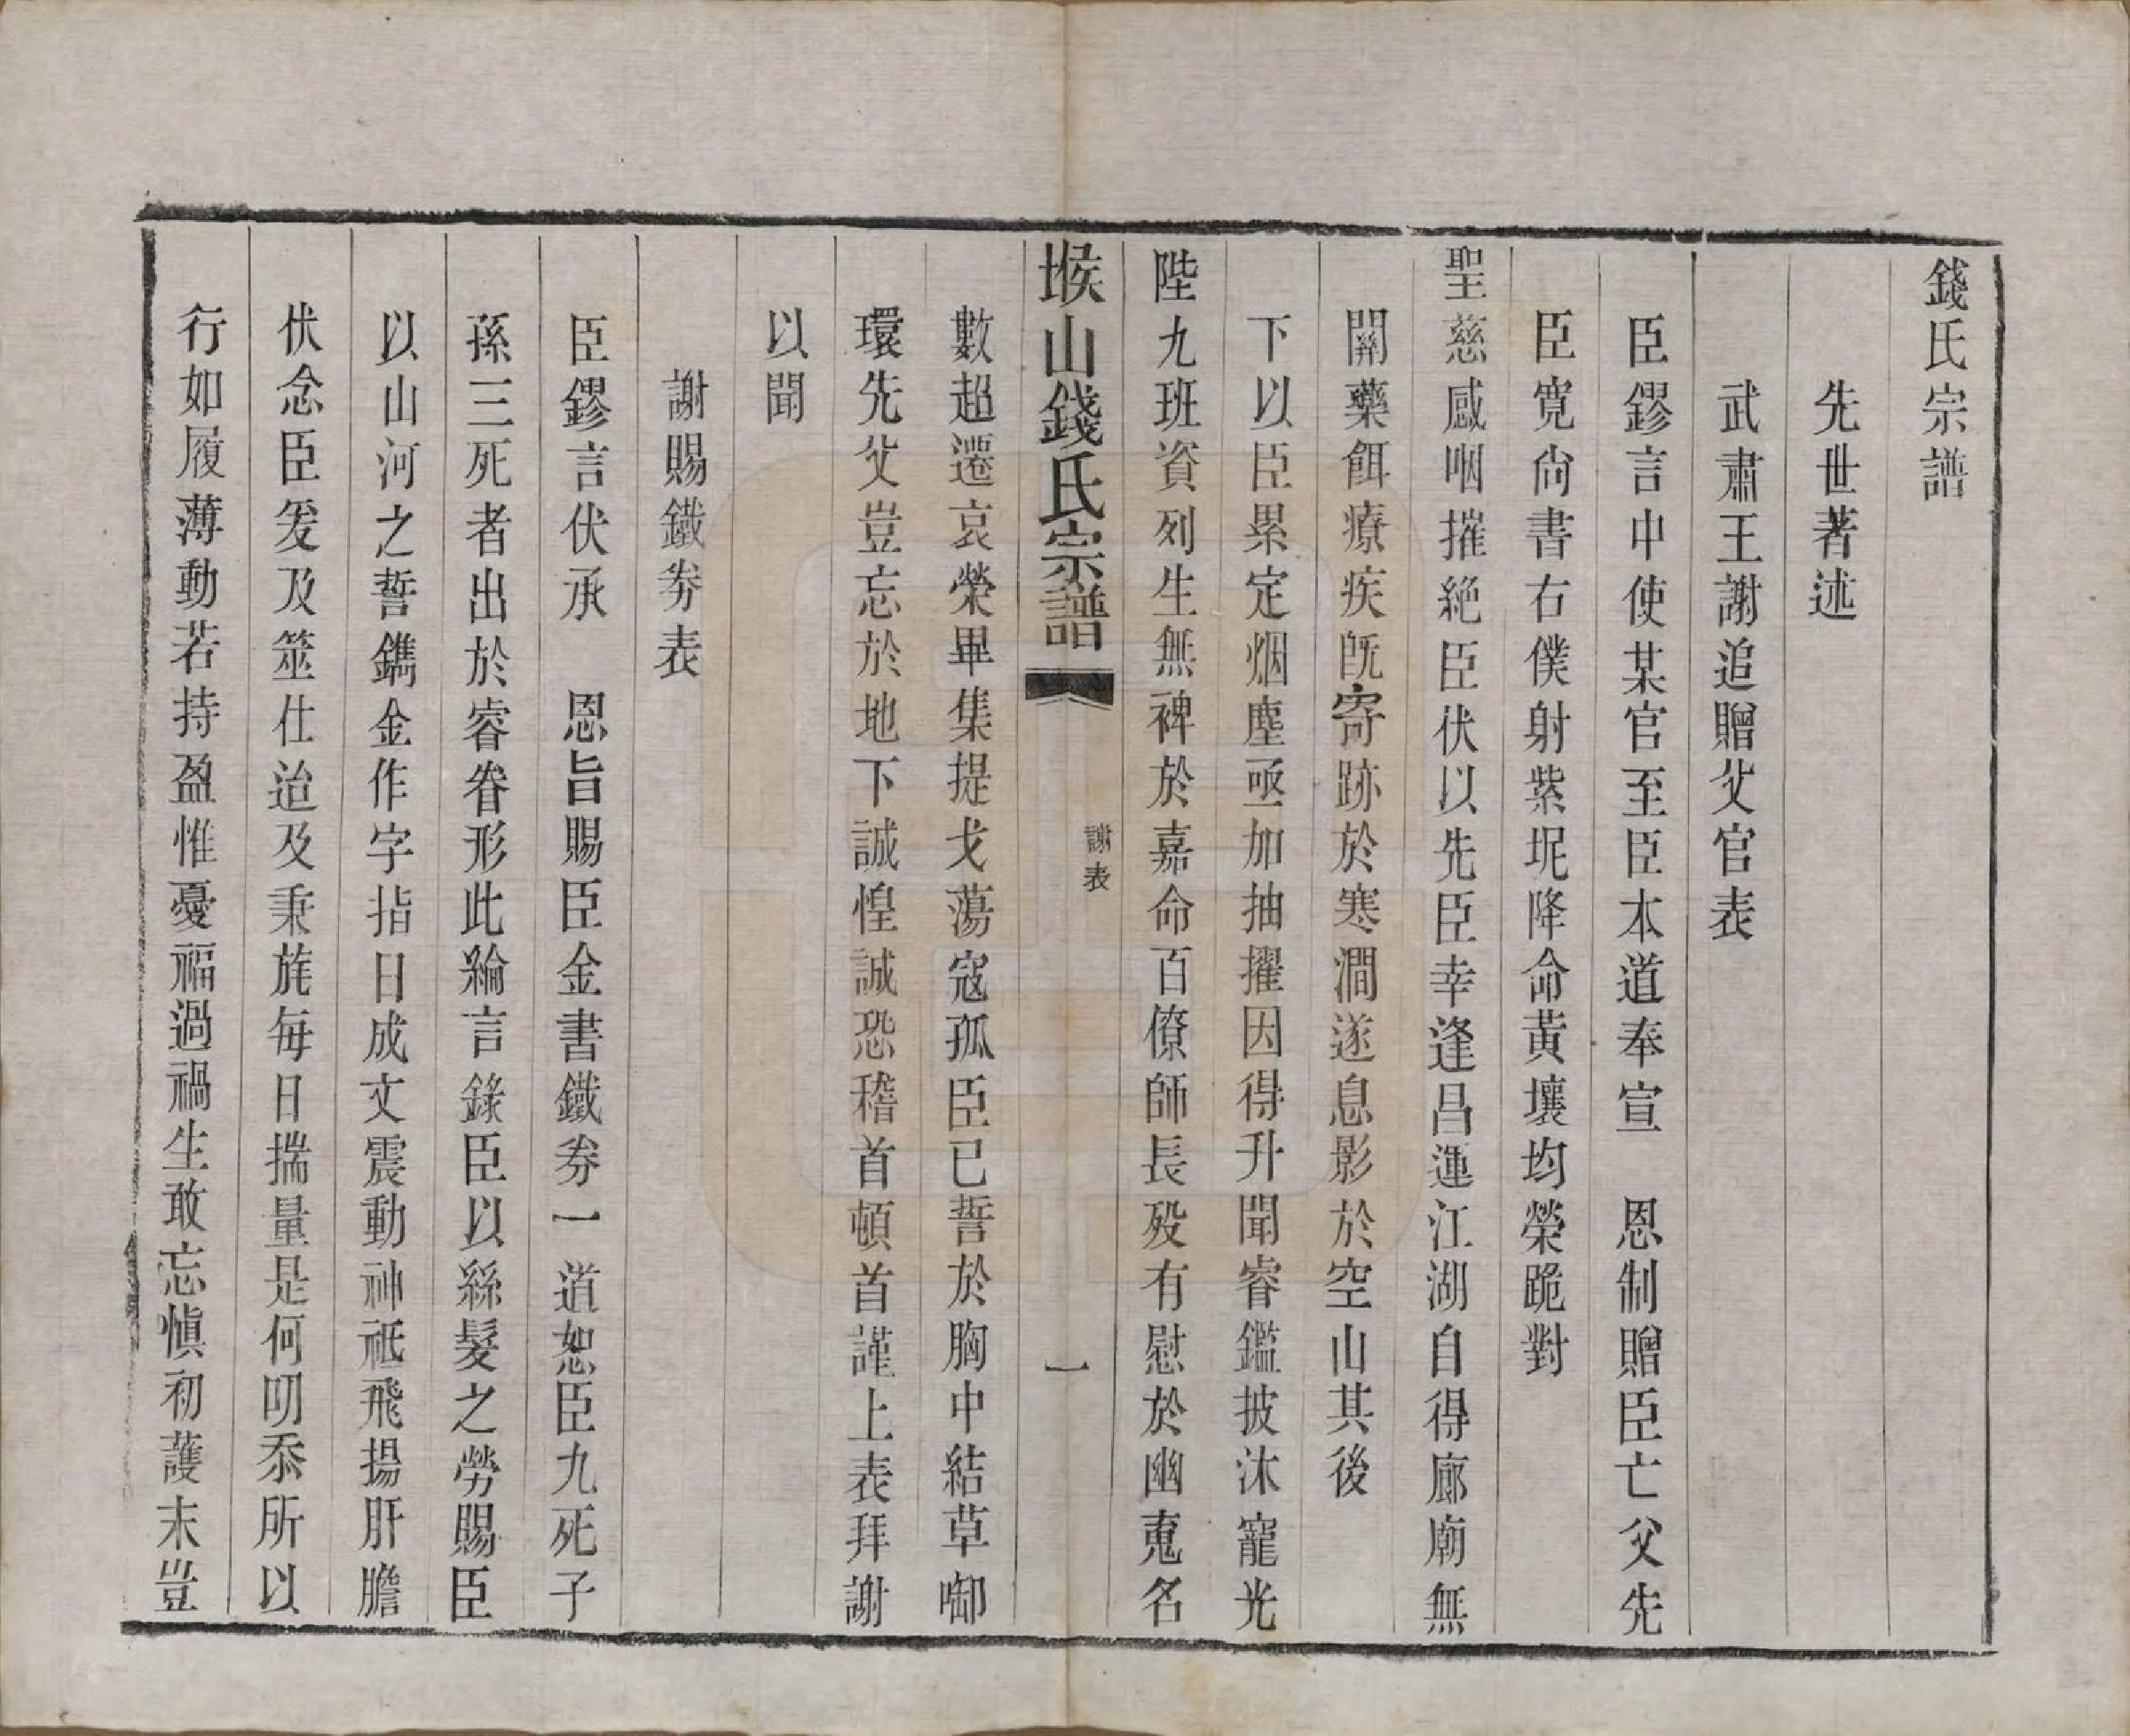 錢氏宗譜
先世著述
武肅王謝追贈父官表
臣鏐言中使某官至臣本道奉宣　恩制贈臣亡父先
臣寬尙書右僕射紫坭降命黃壤均榮跪對
聖慈感咽摧絶臣伏以先臣幸逢昌運江湖自得廊廟無
關藥餌療疾旣寄跡於寒澗遂息影於空山其後
下以臣累定烟塵亟加抽擢因得升聞睿鑑披沐寵光
陛九班資列生無裨於嘉命百僚師長殁有慰於幽䰟名
堠山錢氏宗譜
謝表
一
數超遷哀榮畢集提戈蕩寇孤臣已誓於胸中結草啣
環先父豈忘於地下誠惶誠恐稽首頓首謹上表拜謝
以聞
謝賜鐵券表
臣鏐言伏承　恩旨賜臣金書鐵券一道恕臣九死子
孫三死者出於睿眷形此綸言錄臣以絲髮之勞賜臣
以山河之誓鐫金作字指日成文震動神祇飛揚肝膽
伏念臣爰及筮仕迨及秉旄每日揣量是何叨忝所以
行如履薄動若持盈惟憂福過禍生敢忘愼初護末豈